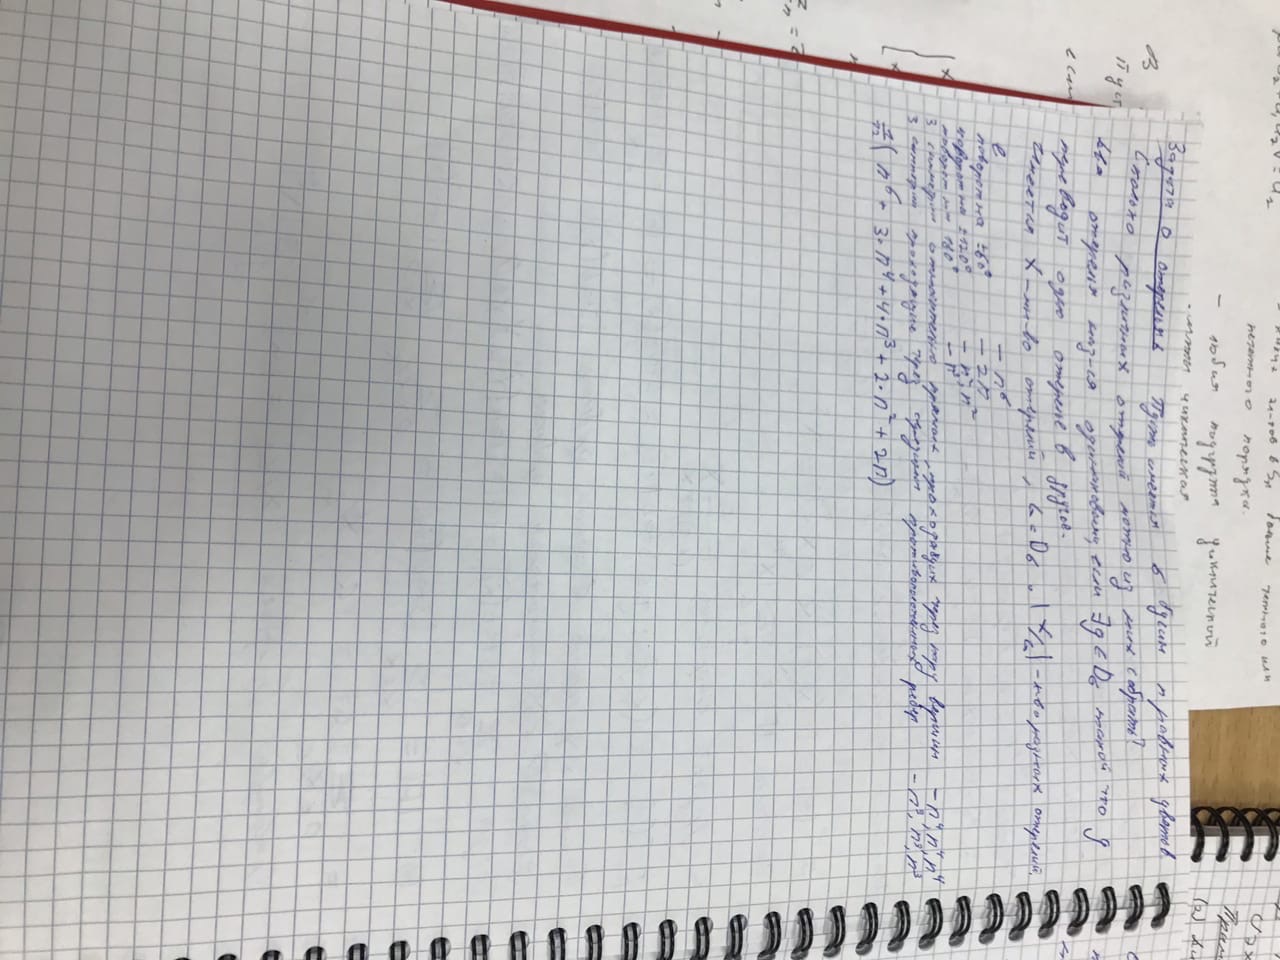 - любая подгруппа циклической
нечетного порядка.
циклическая
В
Пуст
если
Задача о ожерельях Пусть имеется 6 бусин n разных цветов
Сколько различных ожерелий можно из них собрать?
Два ожерелья наз-ся одинаковыми, если ∃g∈D₆ такой что g
переводит одно ожерелье в другое.
Имеется X - мн-во ожерелий, G = D₆. |X/G| - кво разных ожерелий.
e — n⁶
поворот на ±60° — 2n
поворот на ±120° — n², n²
поворот на 180° — n³
3 симметрии относительно прямых, проходящих через пару вершин — n⁴, n⁴, n⁴
3 симметрии проходящие через середины противоположенных ребер — n³, n³, n³
1/12 ( n⁶ + 3·n⁴ + 4·n³ + 2·n² + 2n)